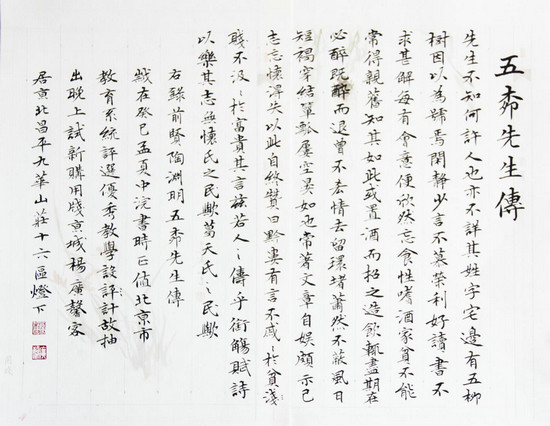 五桺先生傳
先生不知何許人也亦不詳其姓字宅邊有五柳
樹因以為號焉閑靜少言不慕榮利好讀書不
求甚解每有會意便欣然忘食性嗜酒家貧不能
常得親舊知其如此或置酒而招之造飲輒盡期在
必醉既醉而退曾不吝情去留環堵蕭然不蔽風日
短褐穿結簞瓢屢空晏如也常著文章自娛頗示己
志忘懷得失以此自終贊曰黔婁有言不慼〻於貧淺
賤不汲〻於富貴其言茲若人〻儔乎銜觴賦詩
以樂其志無懷氏之民歟葛天氏〻民歟
右錄前賢陶淵明五桺先生傳
歲在癸巳孟夏中浣書時正值北京市
教育系統評選優秀教學設評計故抽
出晚上試新購用牋京城楊廣馨客
居京北昌平九華山莊十六區燈下